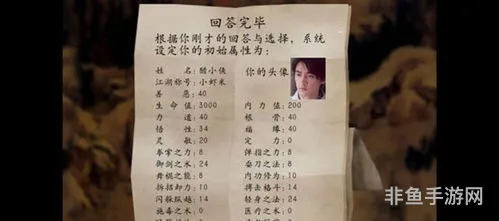 回答完毕
根据你刚才的回答与选择，系统
设定你的初始属性为：
姓 名：醋小侠 你的头像
江湖称号：小虾米
善 恶：40
生 命 值：3000 内 力 值：200
力 道：40 根 骨：40
悟 性：34 福 缘：40
灵 敏：20 定 力：0
拳掌之力：8 弹指之力：8
御剑之术：24 耍刀之法：8
舞棍之能：8 内功修为：10
拆招卸力：10 搏击格斗：14
闪躲纵越：14 轻身之法：24
施毒之术：0 医疗之术：0
非鱼手游网